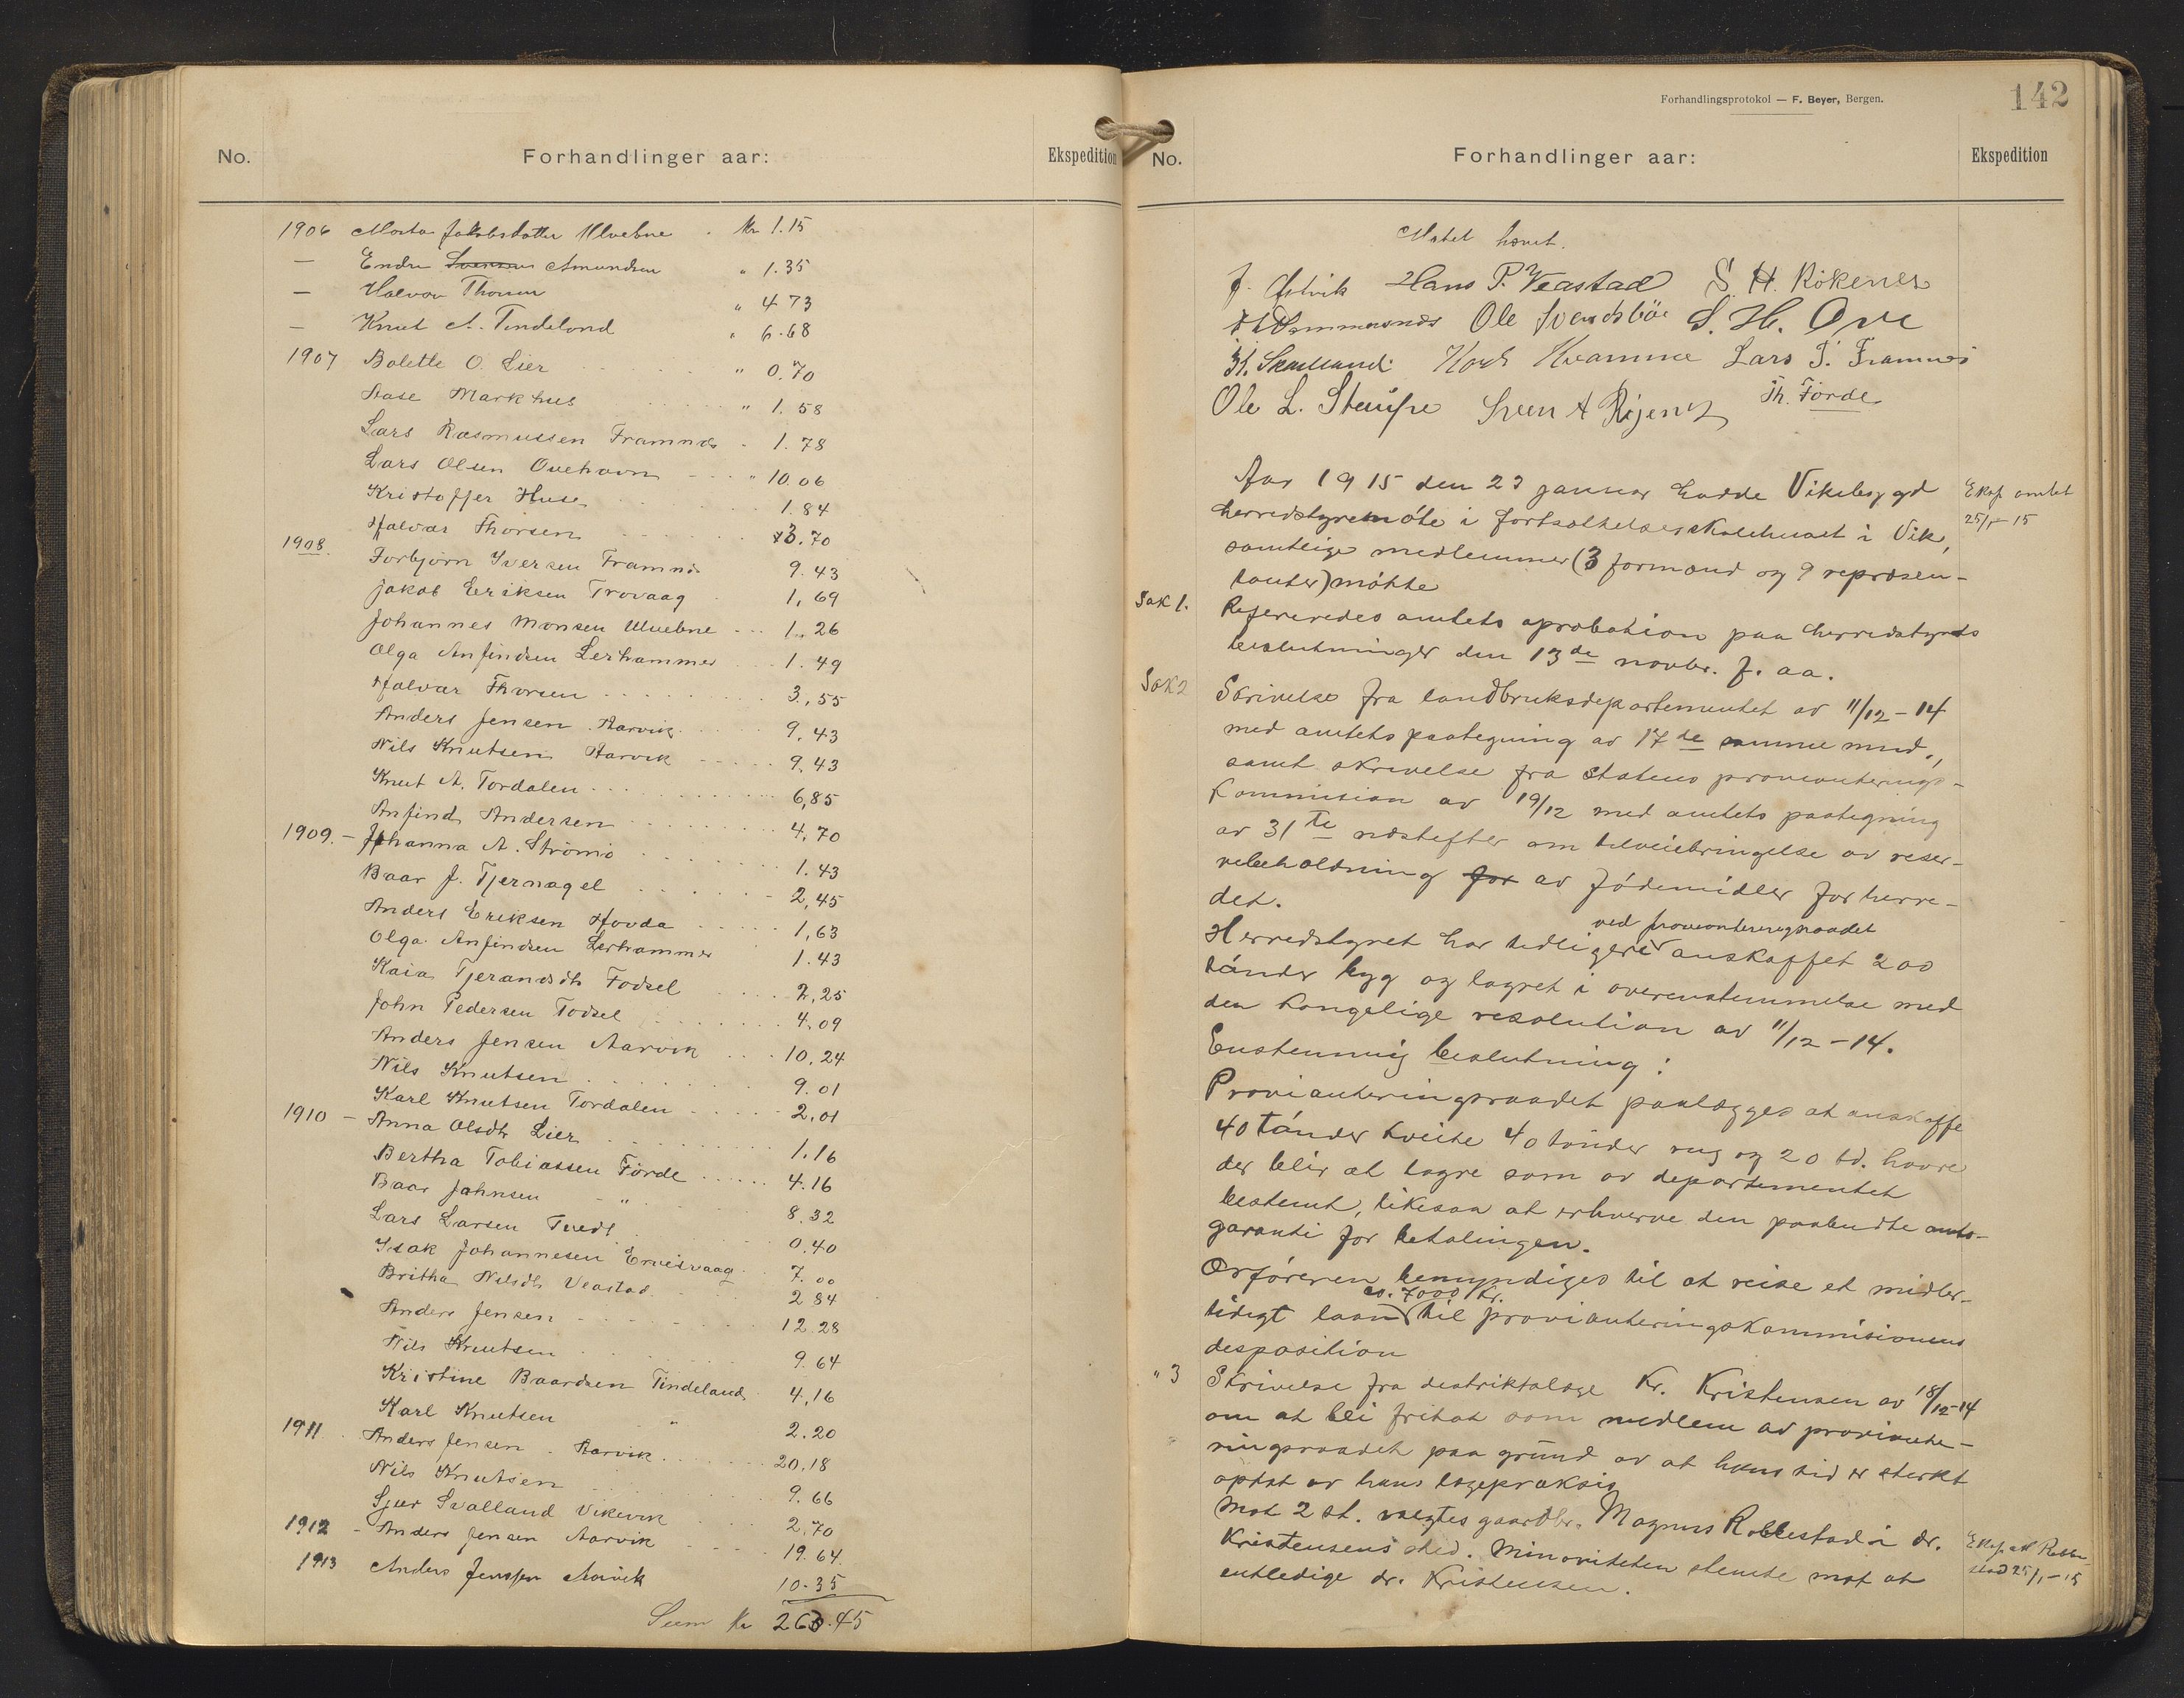 No. Forhandlinger aar: Ekspedition
1906 Marta Jakobsdatter Ulvebne Kr 1.15
— Endre Amundsen " 1.35
— Halvor Thorsen " 4 73
— Knut A. Tindeland " 6.68
1907 Bolette O. Lier " 0.70
Aase Markhus " 1.58
Lars Rasmussen Framnæs - 1.78
Lars Olsen Ovehavn " 10.06
Kristoffer Huse 1.84
Halvar Thorsen 3.70
1908. Torbjørn Iversen Framnæs 9.43
Jakob Eriksen Trovaag 1,69
Johannes Monsen Ulvebne 1.26
Olga Anfindsen Lerhammer 1.49
Halvar Thorsen 3,55
Anders Jensen Aarvik 9,43
Nils Knutsen Aarvik 9,43
Knut A. Tordalen 6,85
Anfind Andersen 4,70
1909. – Johanna A. Strömö 1.43
Baar J. Tjernagel 2,45
Anders Eriksen Hovda 1,63
Olga Anfindsen Lerhammer 1.43
Kaia Tjerandsdtr Fodsel 2,25
John Pedersen Todsel 4,09
Anders Jensen Aarvik 10.24
Nils Knutsen 9.01
Karl Knutsen Tordalen 2,01
1910 – Anna Olsdtr Lier 1.16
Bertha Tobiassen Förde 4.16
Baar Johnsen - " 8.32
Lars Larsen Tvedt 0.40
Isak Johannesen Ervesvaag 7.00
Britha Nilsdtr Veastad 2 84
Anders Jensen 12.28
Nils Knutsen 9.64
Kristine Baardsen Tindeland 4,16
Karl Knutsen " 2.20
1911 Anders Jensen Aarvik 20,18
Nils Knutsen 9.66
Sjur Svalland Vikevik 2,70
1912 - Anders Jensen Aarvik 19.64
1913 Anders Jenssen Aarvik 10.35
Sum kr 263.45
Forhandlingsprotokol — F. Beyer, Bergen.
142
No. Forhandlinger aar: Ekspedition
Møtet hævet.
J. Østvik Hans P. Veastad S. H. Rökenes
Ole Svendsböe S. H. Ove
H. Skaaland Kvamme Lars T. Framnes
Ole L. Staupe Sven A Rijen Th. Förde
Aar 1915 den 23 januar hadde Vikebygd
herredstyre møte i fortsættelsesskolehuset i Vik,
samtlige medlemmer (3 formænd og 9 repræsen-
tanter) møtte
Eksp. amtet
25/1 – 15
Sak 1. Refereredes amtets aprobation paa herredstyrets
beslutninger den 13de novbr. f. aa.
Sak 2 Skrivelse fra landbruksdepartementet av 11/12 – 14
med amtets paategning av 17de samme mnd.,
samt skrivelse fra statens provianterings-
kommision av 19/12 med amtets paategning
av 31te næstefter om tilveiebringelse av reser-
vebeholdning for av fødemidler for herre-
det.
Herredstyret har tidligere ved provianteringsraadet anskaffet 200
tønder byg og lagret i overenstemmelse med
den kongelige resolution av 11/12 – 14.
Enstemmig beslutning:
Provianteringsraadet paalægges at anskaffe
40 tønder hveite 40 tønder rug og 20 td. havre
der blir at lagre som av departementet
bestemt, likesaa at erhverve den paabudte amts-
garanti for betalingen.
Ordføreren bemyndiges til at reise et midler-
tidigt laan ca. 7000 Kr. til provianteringskommisionens
desposition
" 3 Skrivelse fra destriktslæge Kr. Kristensen av 18/12-14
om at bli fritat som medlem av proviante-
ringsraadet paa grund av at hans tid er sterkt
optat av hans lægepraksis
Mot 2 st. valgtes gaardbr. Magnus Robbestad i dr.
Kristensens sted. Minoriteten stemte mot at
entledige dr. Kristensen.
Eksp. til Robbe-
stad 25/1 – 15